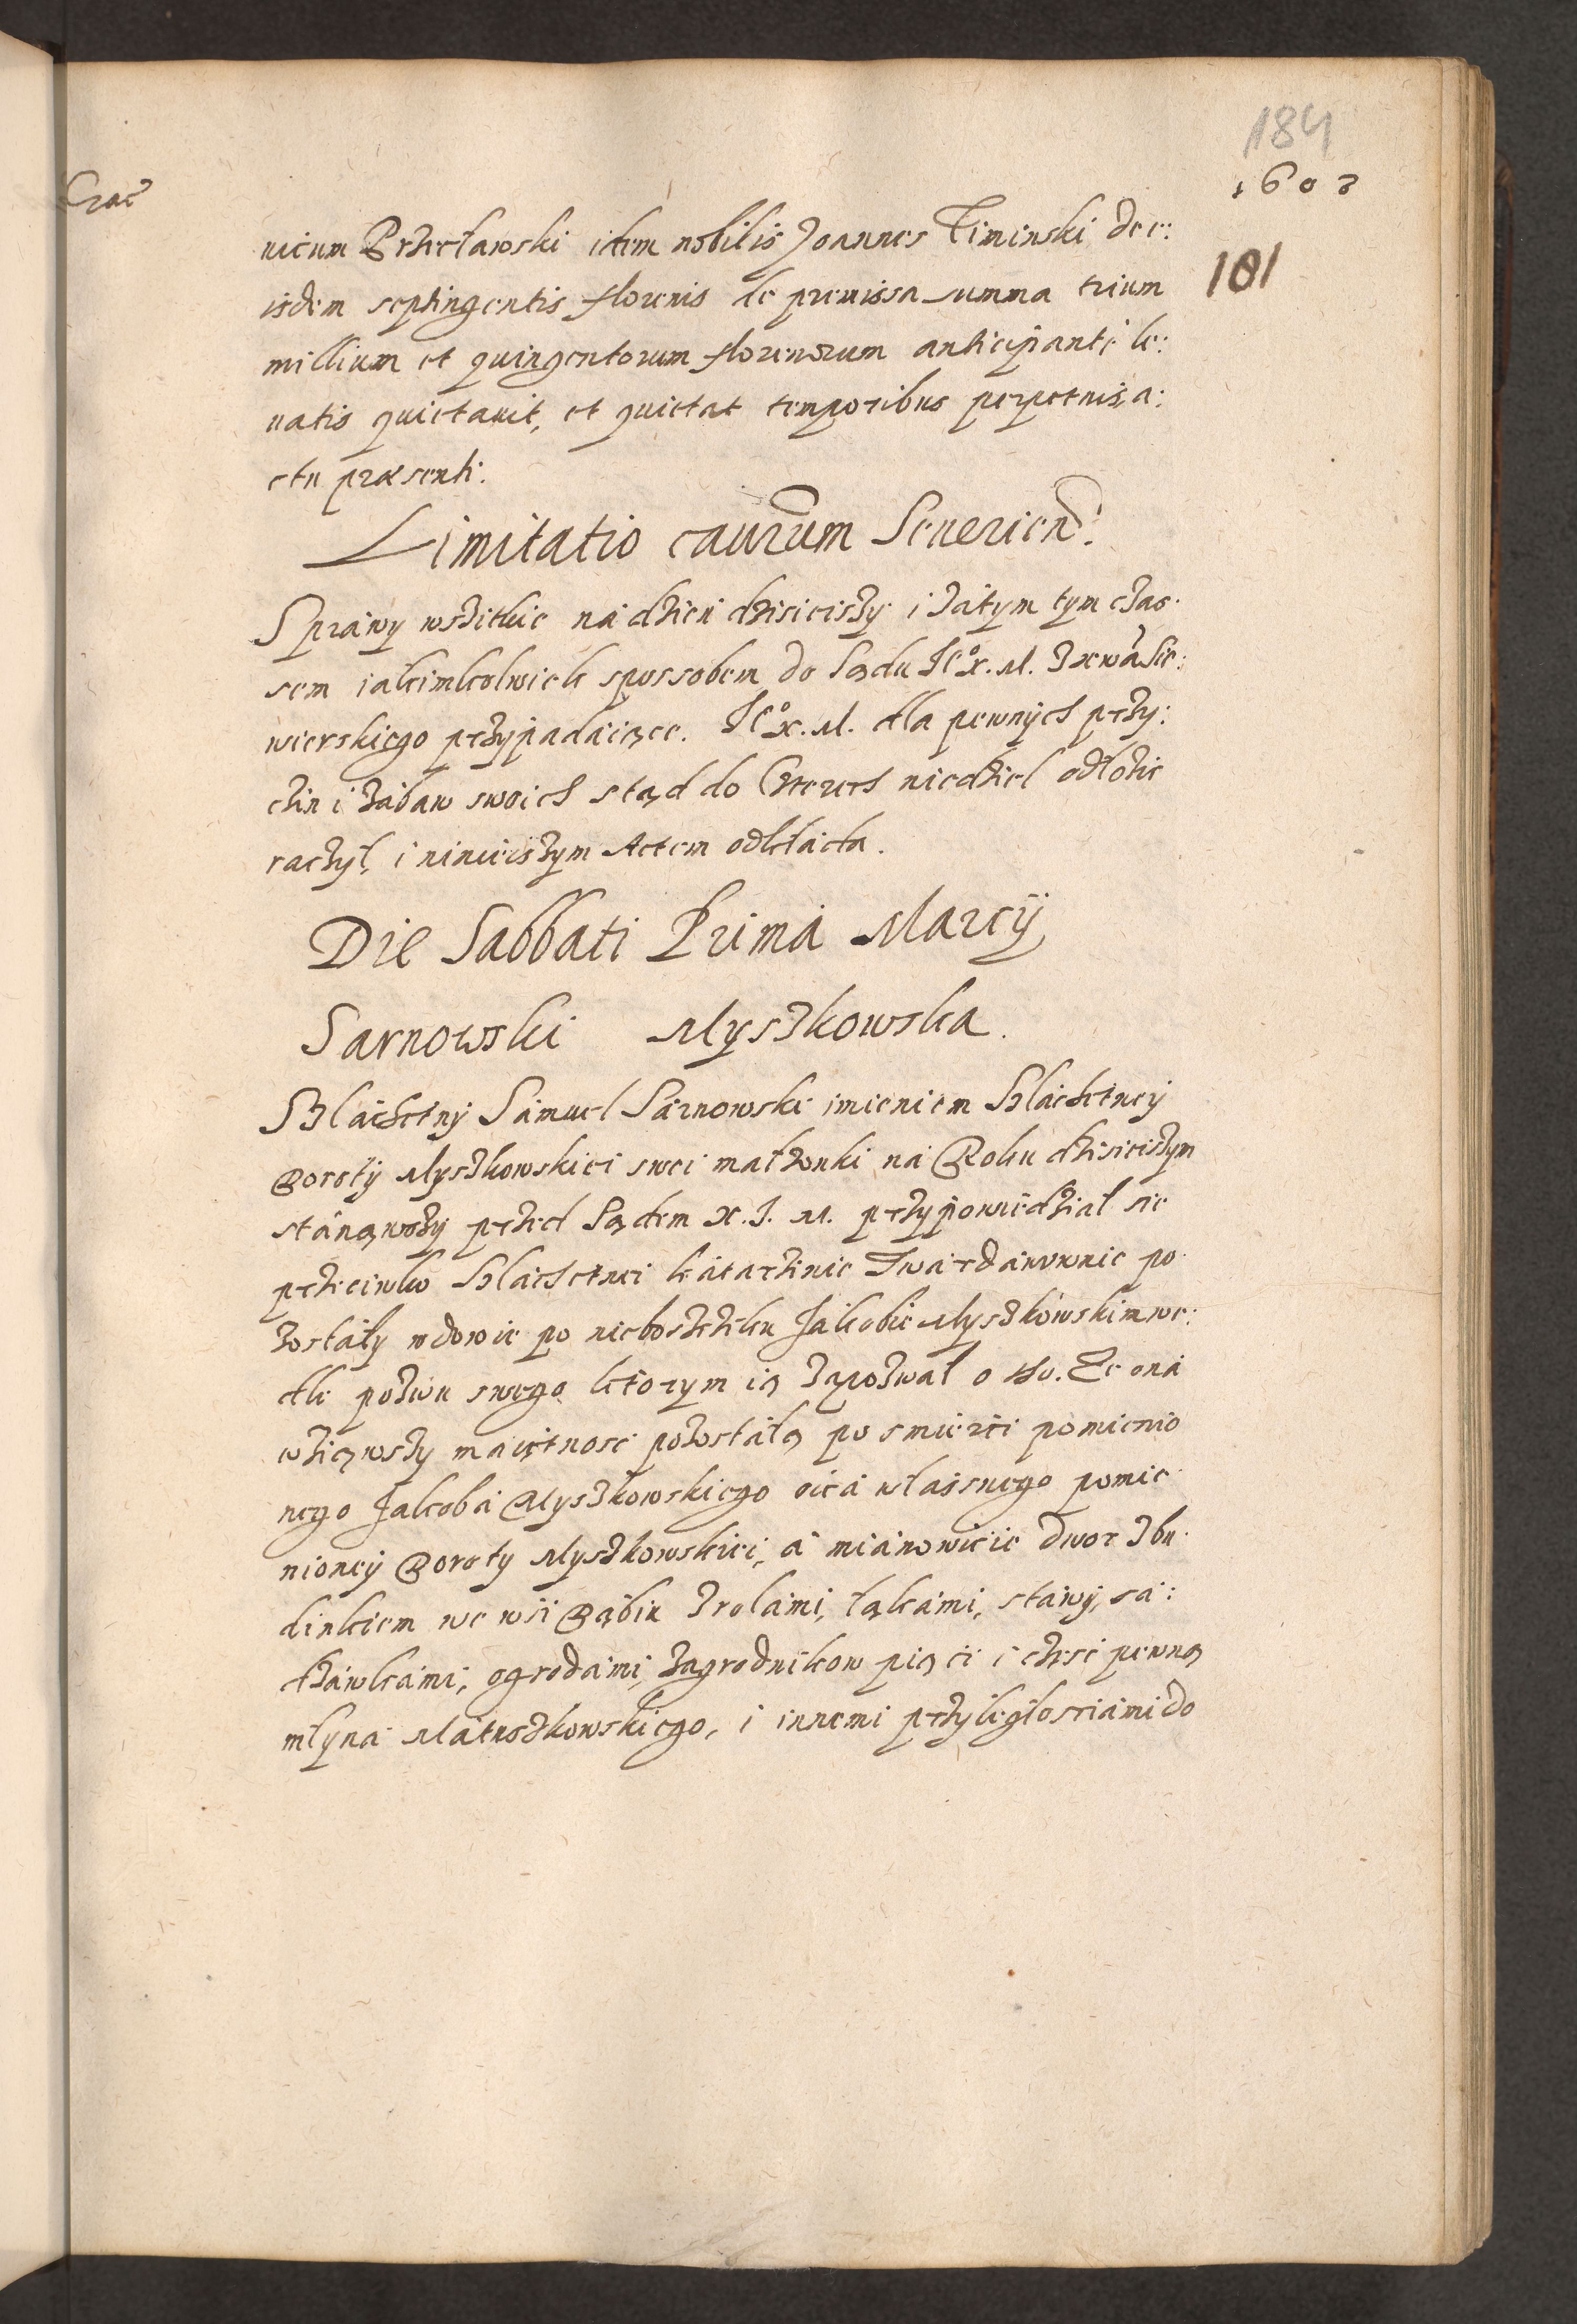 184
1603
Crac
101
uicum Przecławski idem nobilis Joannes Ziminski de e:
isdem septingentis florenis de premissa summa trium
millium et quingentorum florenorum anticipanti le:
uatis quietauit, et quietat temporibus perpetuis, a:
ctu præsenti.
Limitatio causarum Seuerien:
Sprawy wszitkie na dzień dzisieiszy i zatym tym czas
sem iakimkolwiek spossobem do Sądu Je° x. M. Xtwa Sie:
wierskiego przypadaiące. Je° x. M. dla pewnych przy:
czin i zabaw swoich stąd do Czterech niedziel odłożic
raczył, i ninieiszym Actem odkłada.
Die Sabbati Prima Marcij
Sarnowski Myszkowska.
Szlachetny Samuel Sarnowski imieniem Szlachetney
Doroty Myszkowskiei swei małżonki na Roku dzisieiszym
stanąwszy przed Sądem X. J. M. przypowiedział sie
przeciwko Szlachetnei Katarzinie Twardawownie po
zostały wdowie po nieboszcziku Jakobie Myszkowskim we:
dle pozwu swego ktorym ią zapozwał o to. Ze ona
wziąwszy maiętnosc pozostałą po smierci pomienio
nego Jakoba Myszkowskiego oica własnego pomie
nioney Doroty Myszkowskiei, a mianowicie dwor z bu
dinkiem we wsi Dąbiu z rolami, łąkami, stawy, sa:
dzawkami, ogrodami, zagrodnikow pięci i częsc pewną
młyna Matuszkowskiego, i innemi przyległosciami do